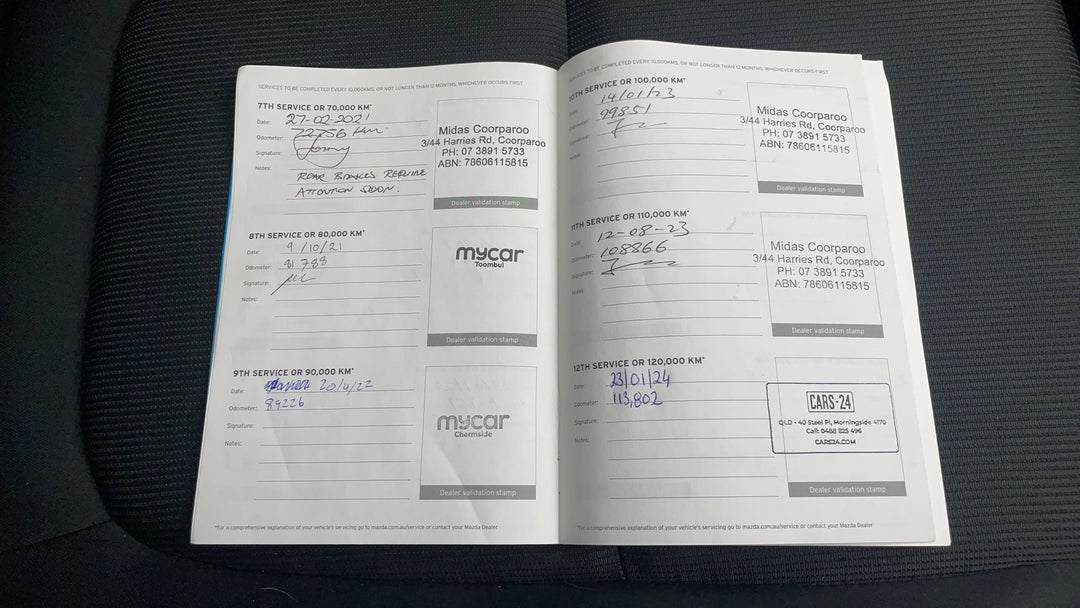 SERVICES TO BE COMPLETED EVERY 10,000KMS, OR NOT LONGER THAN 12 MONTHS, WHICHEVER OCCURS FIRST
7TH SERVICE OR 70,000 KM*
Date: 27-02-2021
Odometer: 72756 Km
Signature:
Notes:
REAR BRAKES REQUIRE
ATTENTION SOON.
Midas Coorparoo
3/44 Harries Rd, Coorparoo
PH: 07 3891 5733
ABN: 78606115815
Dealer validation stamp
8TH SERVICE OR 80,000 KM*
Date: 9/10/21
Odometer: 81788
Signature:
Notes:
mycar
Toombul
Dealer validation stamp
9TH SERVICE OR 90,000 KM*
Date: 20/4/22
Odometer: 89226
Signature:
Notes:
mycar
Chermside
Dealer validation stamp
*For a comprehensive explanation of your vehicle's servicing go to mazda.com.au/service or contact your Mazda Dealer
SERVICES TO BE COMPLETED EVERY 10,000KMS, OR NOT LONGER THAN 12 MONTHS, WHICHEVER OCCURS FIRST
10TH SERVICE OR 100,000 KM*
Date: 14/01/23
Odometer: 99851
Signature:
Notes:
Midas Coorparoo
3/44 Harries Rd, Coorparoo
PH: 07 3891 5733
ABN: 78606115815
Dealer validation stamp
11TH SERVICE OR 110,000 KM*
Date: 12-08-23
Odometer: 108866
Signature:
Notes:
Midas Coorparoo
3/44 Harries Rd, Coorparoo
PH: 07 3891 5733
ABN: 78606115815
Dealer validation stamp
12TH SERVICE OR 120,000 KM*
Date: 23/01/24
Odometer: 113,802
Signature:
Notes:
CARS·24
QLD - 40 Steel Pl, Morningside 4170
Call: 0488 825 496
CARS24.COM
Dealer validation stamp
*For a comprehensive explanation of your vehicle's servicing go to mazda.com.au/service or contact your Mazda Dealer